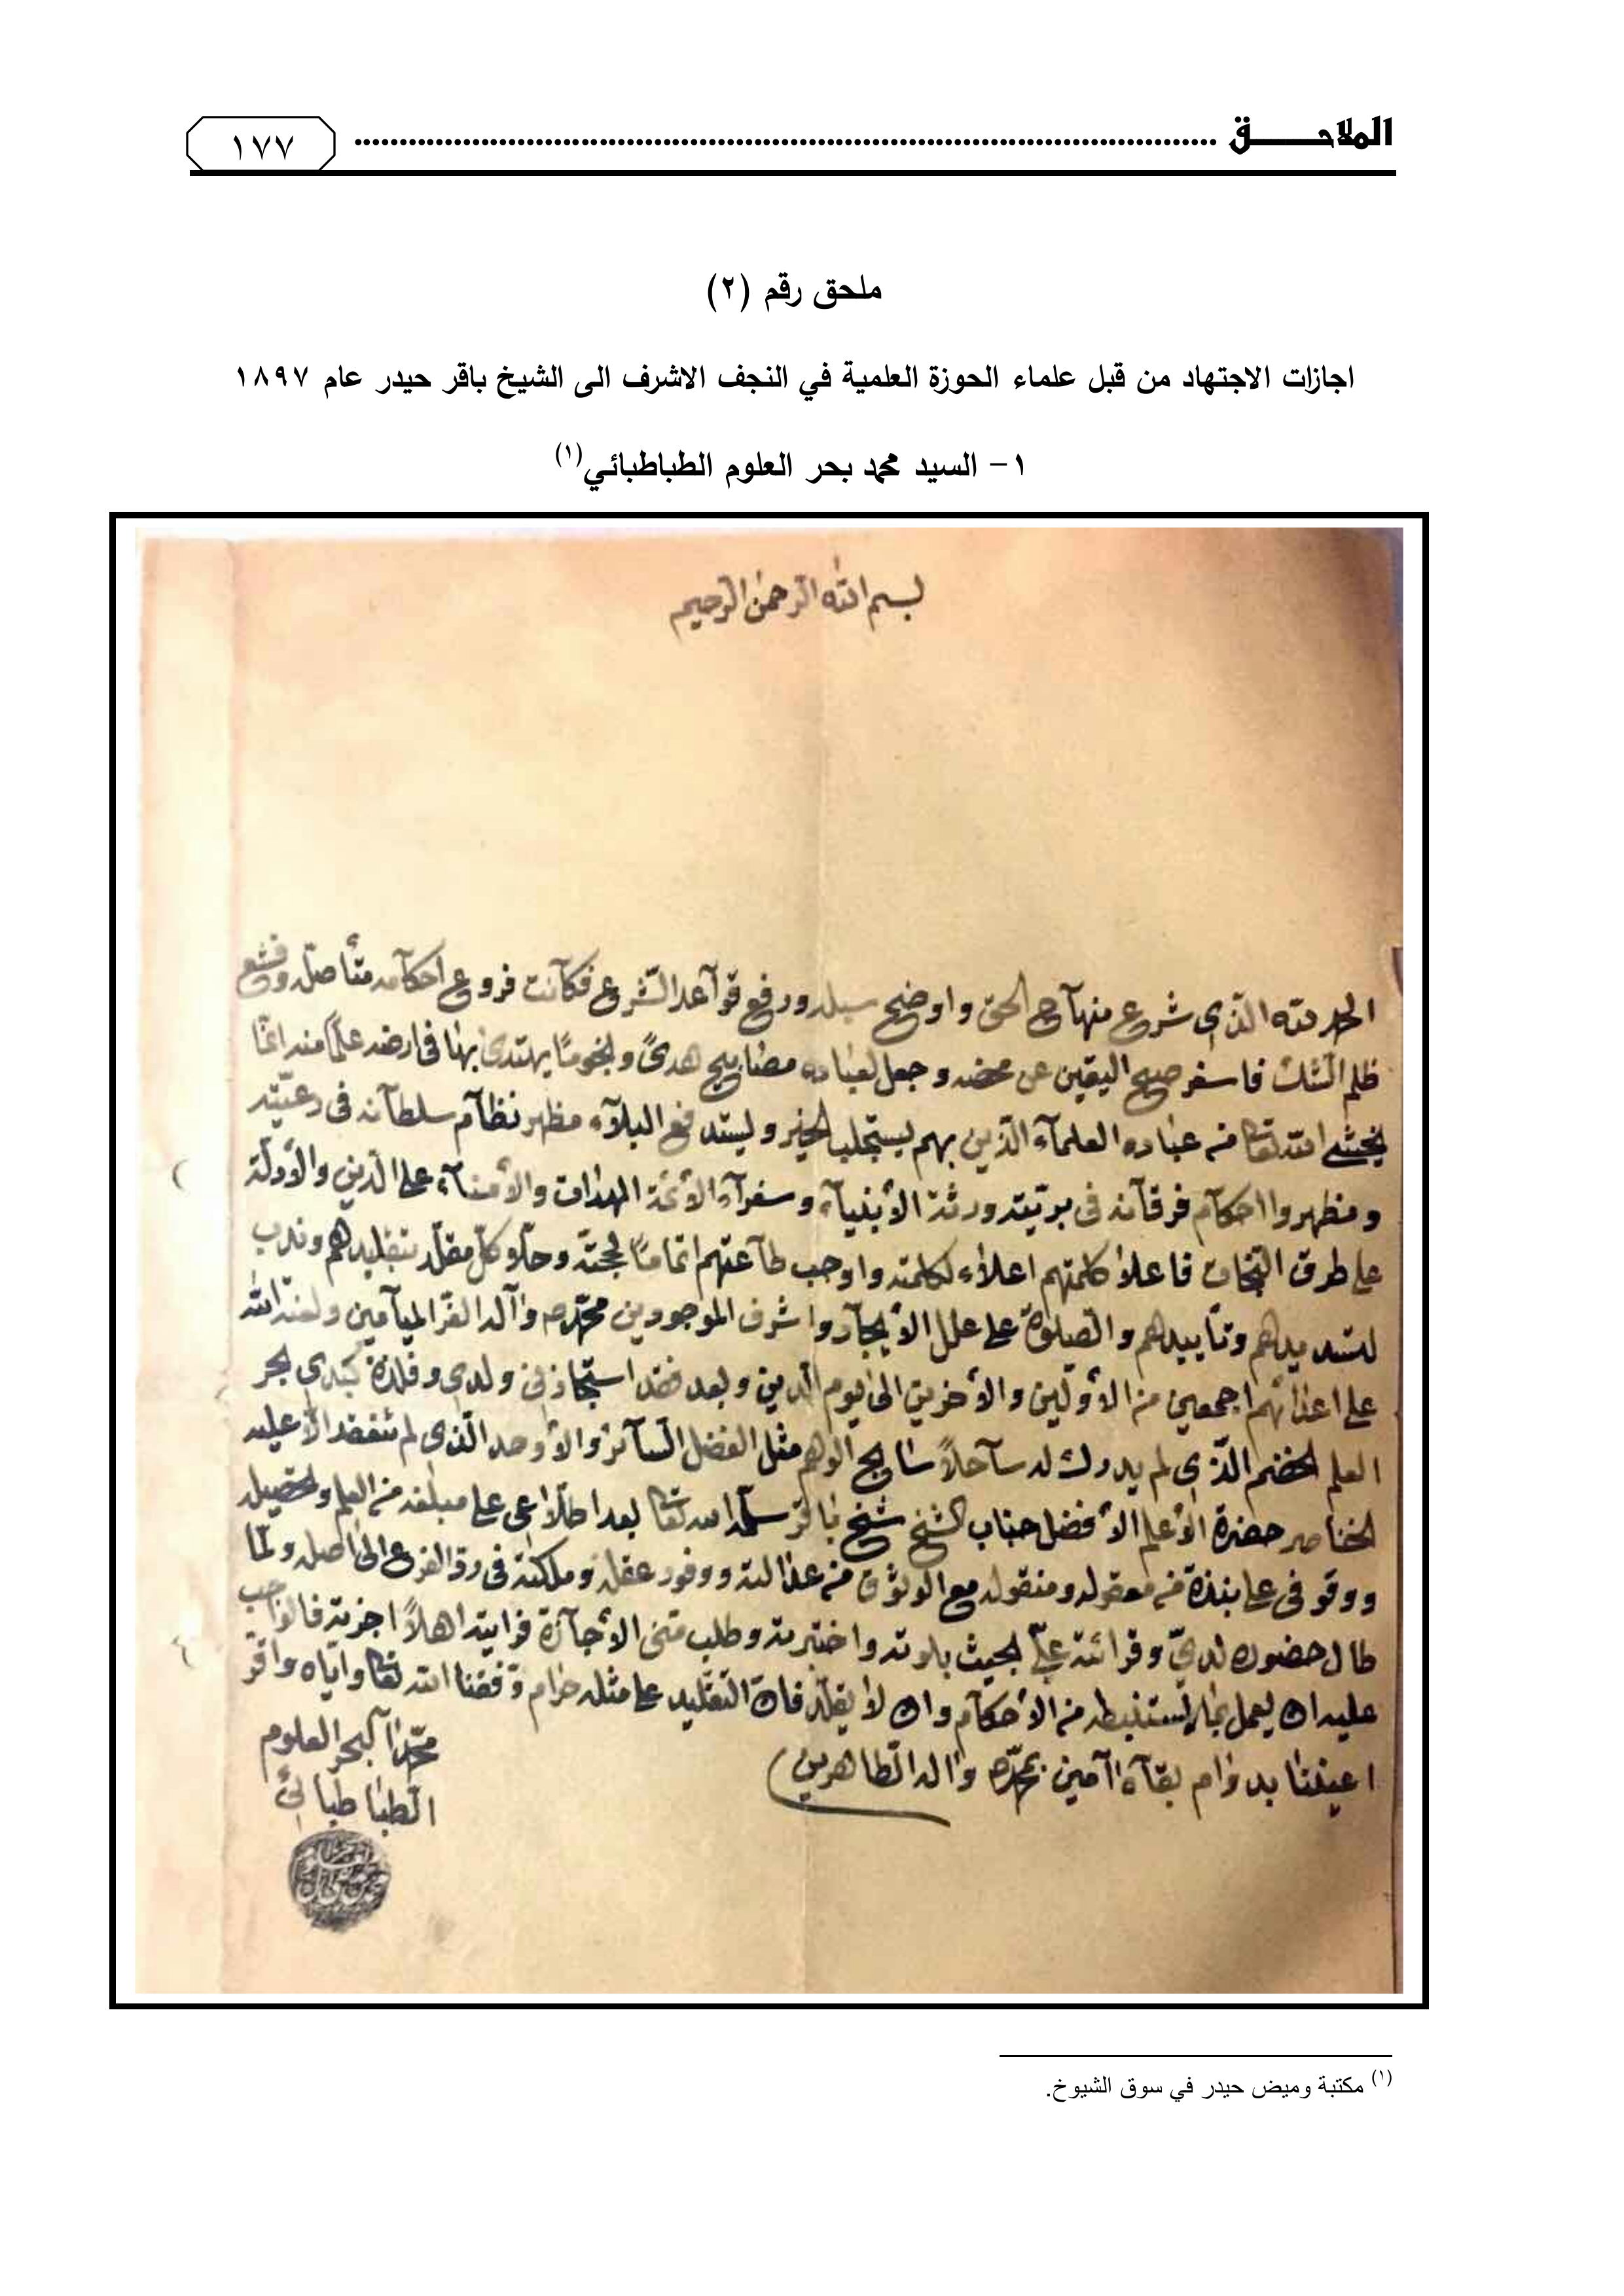 الملاحـــــق ................................................................ ١٧٧
ملحق رقم (٢)
اجازات الاجتهاد من قبل علماء الحوزة العلمية في النجف الاشرف الى الشيخ باقر حيدر عام ١٨٩٧
١- السيد محمد بحر العلوم الطباطبائي(١)
بسم الله الرحمن الرحيم
الحمد لله الذي شرع منهآج الحق واوضح سبله ورفع قوآعد الشرع فكآنت فروع احكآمه متأصله وقشع
ظلم الشك فاسفر صبح اليقين عن محضه وجعل لعباده مصابيح هدىً ونجومًا يهتدى بها فى ارضه علمآ منه انما
يخشى الله تعالى من عباده العلمآء الذين بهم ليستجلب الخير وليستدفع البلآء مظهر نظآم سلطآنه فى رعيته
ومظهروا احكآم فرقآنه فى بريته ورثة الأنبيآء وسفرآء الأئمة الهداة والأمنآء على الدين والأدلة
على طرق النجاة فاعلا كلمتهم اعلاء لكلمته واوجب طآعتهم اتمامًا لحجته وكل مقلد بتقليدهم وندب
لتسديدهم وتأييدهم والصلوة على علل الأيجآد واشرف الموجودين محمد وآله الغر الميآمين ولعنة الله
على اعدائهم اجمعين من الأولين والأخرين الى يوم الدين وبعد فقد استجاز منى ولدي وفلذة كبدي بحر
العلم الخضم الذي لم يدرك له سآحلاً سابح الوهم مثل الفضل السآئر والأوحد الذي لم تنعقد الا عليه
الخناصر حضرة الأعلم الأفضل جناب الشيخ شيخ باقر سلمه الله تعالى بعد اطلاعى على مبلغه من العلم وتحصيله
ووقوفى على نبذة من معقوله ومنقوله مع الوثوق من عدالته ووفور عقله وملكته فى رد الفرع الى اصله ولما
طال حضوره لدي وقرائته علي بحيث بلوته واختبرته وطلب منى الأجآزة فرأيته اهلاً اجزته فالواجب
عليه ان يعمل بما يستنبطه من الأحكآم وان لا يقلد فان التقليد على مثله حرام وفقنا الله تعالى واياه واقر
اعيننا بدوام بقآه آمين بمحمد واله الطاهرين
محمد آل بحر العلوم
الطباطبائي
(١) مكتبة وميض حيدر في سوق الشيوخ.